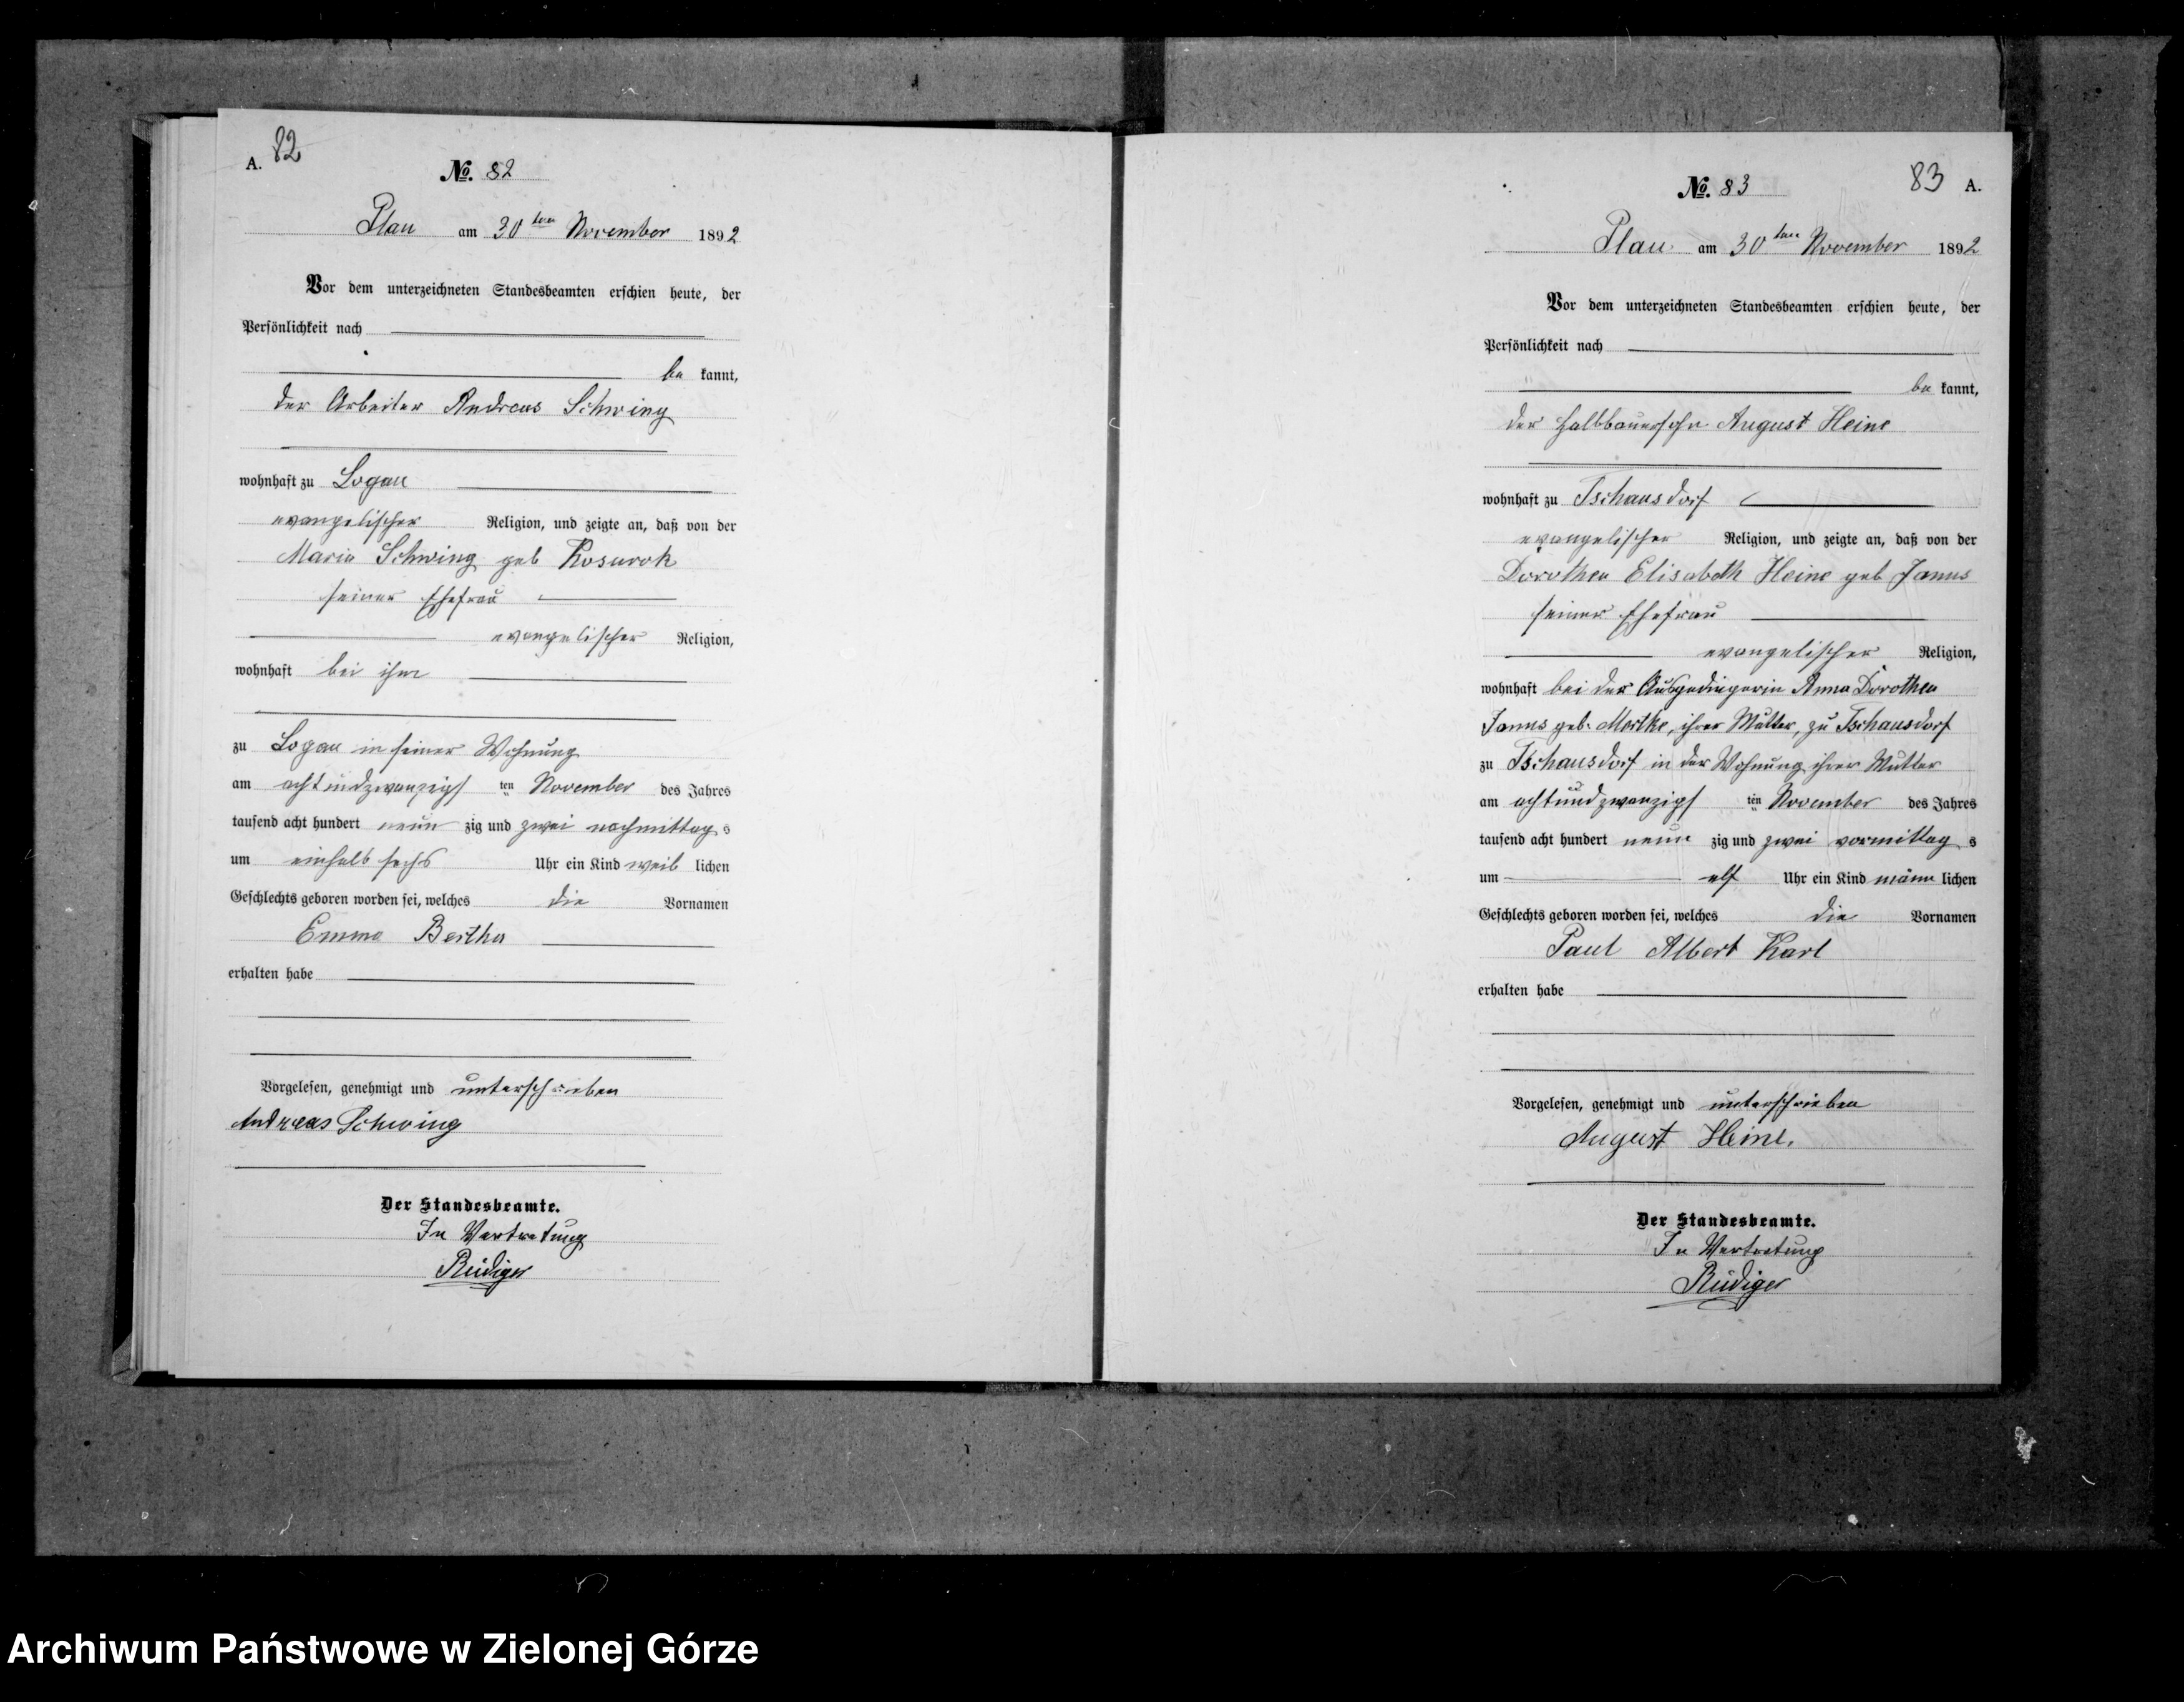 82
A.
No. 82
Plau am 30ten November 1892
Vor dem unterzeichneten Standesbeamten erschien heute, der
Persönlichkeit nach
be kannt,
der Arbeiter Andreas Schwing
wohnhaft zu Logau
evangelischer Religion, und zeigte an, daß von der
Maria Schwing geb
seiner Ehefrau
evangelischer Religion,
wohnhaft bei ihm
zu Logau in seiner Wohnung
am achtundzwanzigsten November des Jahres
tausend acht hundert neun zig und zwei nachmittag s
um einhalb sechs Uhr ein Kind weib lichen
Geschlechts geboren worden sei, welches die Vornamen
Emma Bertha
erhalten habe
Vorgelesen, genehmigt und unterschrieben
Andreas Schwing
Der Standesbeamte.
In Vertretung
Rüdiger
83 A.
No. 83
Plau am 30ten November 1892
Vor dem unterzeichneten Standesbeamten erschien heute, der
Persönlichkeit nach
be kannt,
der Halbbauersohn August Heine
wohnhaft zu Tschausdorf
evangelischer Religion, und zeigte an, daß von der
Dorothea Elisabeth Heine geb Janus
seiner Ehefrau
evangelischer Religion,
wohnhaft bei der Ausgedingerin Anna Dorothea
Janus geb. ihrer Mutter, zu Tschausdorf
zu Tschausdorf in der Wohnung ihrer Mutter
am achtundzwanzigsten November des Jahres
tausend acht hundert neun zig und zwei vormittag s
um elf Uhr ein Kind männ lichen
Geschlechts geboren worden sei, welches die Vornamen
Paul Albert Karl
erhalten habe
Vorgelesen, genehmigt und unterschrieben
August Heine.
Der Standesbeamte.
In Vertretung
Rüdiger
Archiwum Państwowe w Zielonej Górze